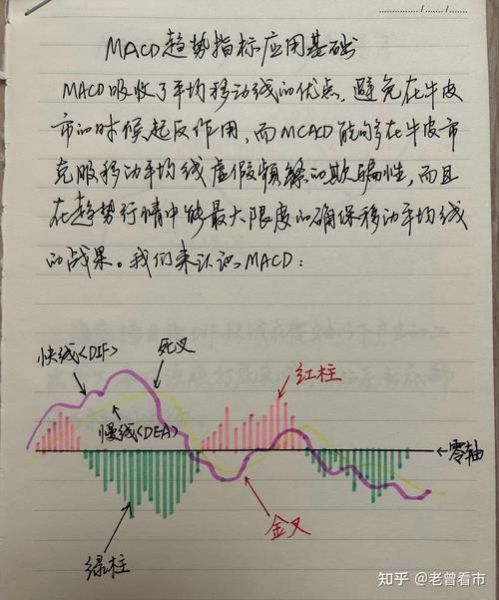 MACD趋势指标应用基础
MACD吸收了平均移动线的优点,避免在牛皮
市的时候起反作用,而MCACD能够在牛皮市
克服移动平均线虚假频繁的欺骗性,而且
在趋势行情中能最大限度的确保移动平均线
的战果。我们来认识MACD:
快线<DIF>
死叉
红柱
慢线<DEA>
零轴
金叉
绿柱
知乎 @老曾看市